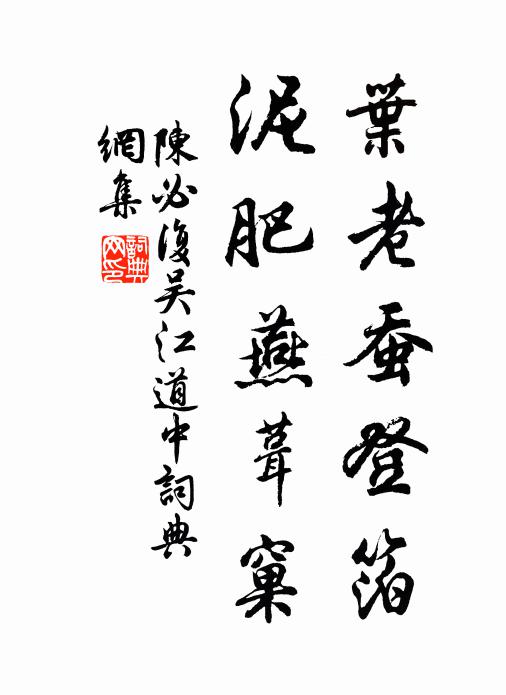 葉老蚕登箔
泥肥燕葺窠
陳必復吳江道中詞典
網集
詞典网印